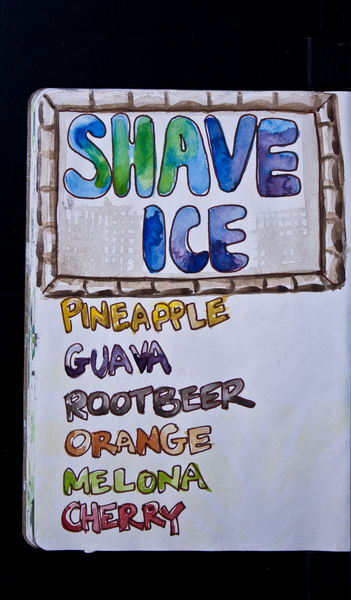 SHAVE
ICE
PINEAPPLE
GUAVA
ROOTBEER
ORANGE
MELONA
CHERRY